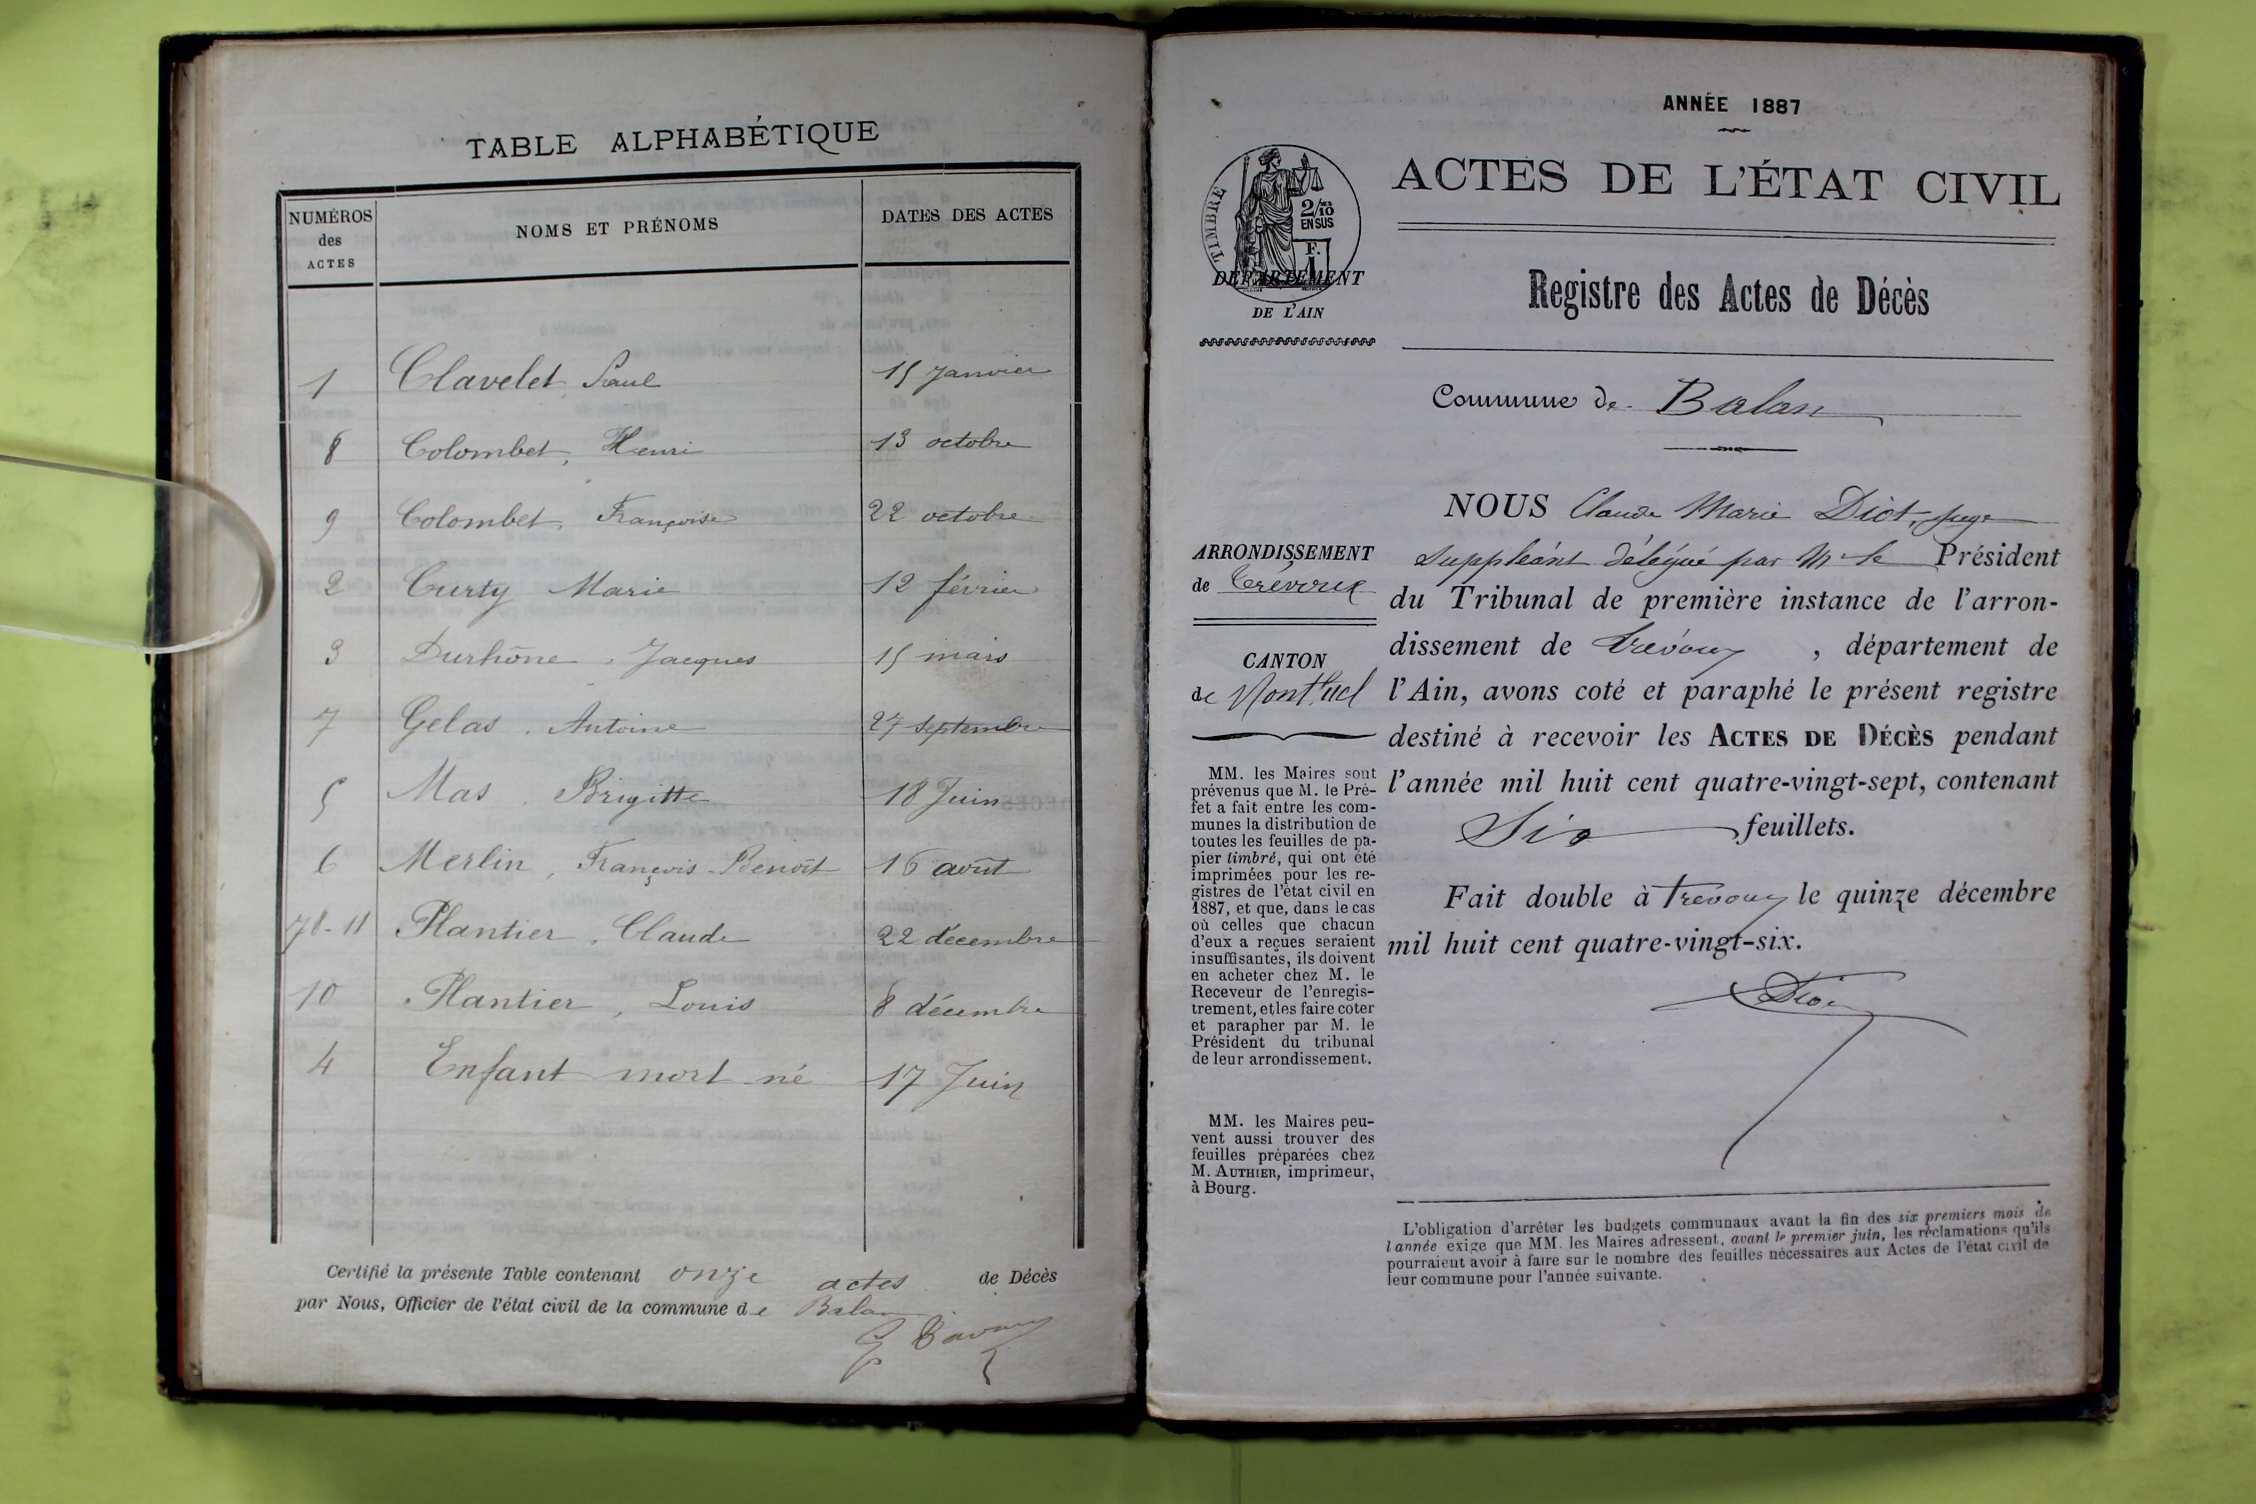 TABLE ALPHABÉTIQUE
NUMÉROS des ACTES
NOMS ET PRÉNOMS
DATES DES ACTES
1 Clavelet, Paul 15 Janvier
8 Colombet, Henri 13 octobre
9 Colombet, Françoise 22 octobre
2 Curty Marie 12 février
3 Durhône, Jacques 15 mars
7 Gelas, Antoine 27 septembre
5 Mas, Brigitte 18 Juin
6 Merlin, François-Benoît 16 août
11 Plantier, Claude 22 décembre
10 Plantier, Louis 8 décembre
4 Enfant mort né 17 Juin
Certifié la présente Table contenant onze actes de Décès
par Nous, Officier de l'état civil de la commune de Balan
ANNÉE 1887
TIMBRE
2/10
EN SUS
F.
1
DÉPARTEMENT
DE L'AIN
ARRONDISSEMENT
de Trévoux
CANTON
de Montluel
MM. les Maires sont
prévenus que M. le Pré-
fet a fait entre les com-
munes la distribution de
toutes les feuilles de pa-
pier timbré, qui ont été
imprimées pour les re-
gistres de l'état civil en
1887, et que, dans le cas
où celles que chacun
d'eux a reçues seraient
insuffisantes, ils doivent
en acheter chez M. le
Receveur de l'enregis-
trement, et les faire coter
et parapher par M. le
Président du tribunal
de leur arrondissement.
MM. les Maires peu-
vent aussi trouver des
feuilles préparées chez
M. AUTHIER, imprimeur,
à Bourg.
ACTES DE L'ÉTAT CIVIL
Registre des Actes de Décès
Commune de Balan
NOUS Claude Marie Diot, juge
suppléant délégué par Mr le Président
du Tribunal de première instance de l'arron-
dissement de Trévoux, département de
l'Ain, avons coté et paraphé le présent registre
destiné à recevoir les ACTES DE DÉCÈS pendant
l'année mil huit cent quatre-vingt-sept, contenant
Six feuillets.
Fait double à Trévoux le quinze décembre
mil huit cent quatre-vingt-six.
Diot
L'obligation d'arrêter les budgets communaux avant la fin des six premiers mois de
l'année exige que MM. les Maires adressent, avant le premier juin, les réclamations qu'ils
pourraient avoir à faire sur le nombre des feuilles nécessaires aux Actes de l'état civil de
leur commune pour l'année suivante.